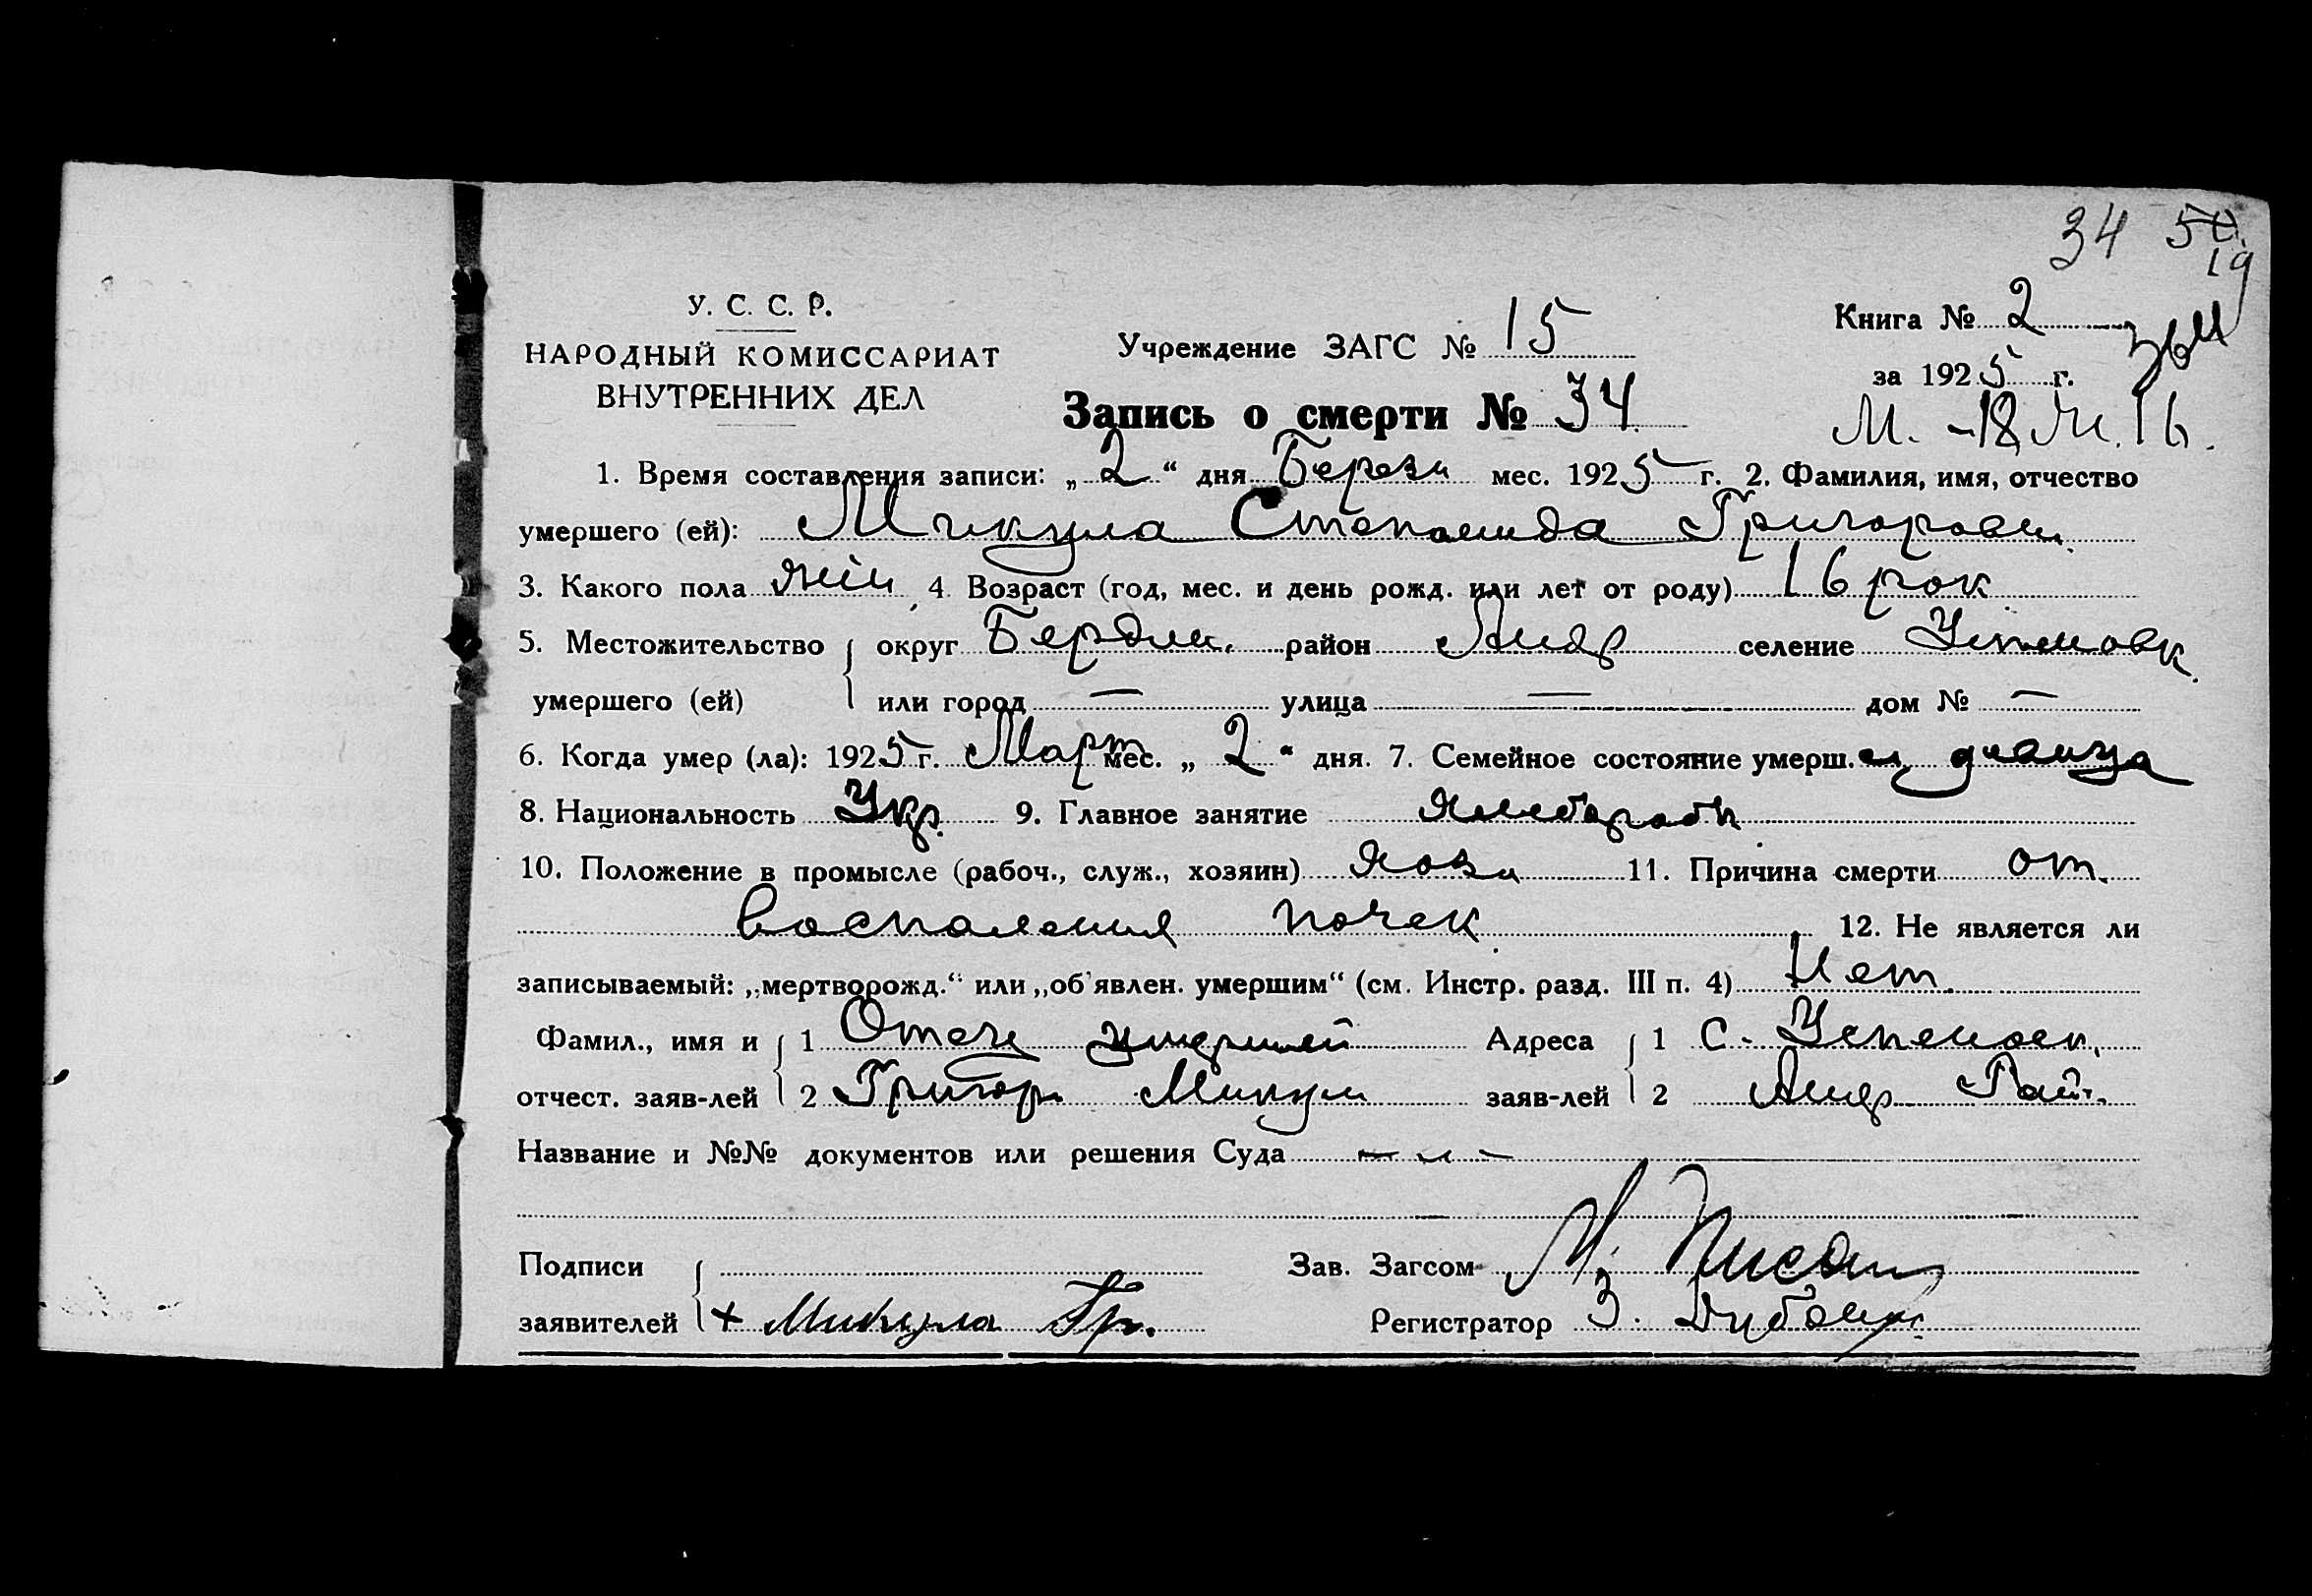 34 50
19
У. С. С. Р.
НАРОДНЫЙ КОМИССАРИАТ
ВНУТРЕННИХ ДЕЛ
Учреждение ЗАГС № 15
Запись о смерти № 34
Книга № 2
за 1925 г.
1. Время составления записи: „2“ дня Березн мес. 1925 г. 2. Фамилия, имя, отчество
умершего (ей): Микула Степанида Григоровн.
3. Какого пола жін 4. Возраст (год, мес. и день рожд. или лет от роду) 16 рок
5. Местожительство округ Бердян. район Андр селение Успеновк.
умершего (ей) или город — улица — дом № —
6. Когда умер (ла): 1925 г. Март мес. „2“ дня. 7. Семейное состояние умерш.
8. Национальность Укр. 9. Главное занятие Хлебороб
10. Положение в промысле (рабоч., служ., хозяин) 11. Причина смерти от
воспаления почек 12. Не является ли
записываемый: „мертворожд.“ или „об'явлен. умершим“ (см. Инстр. разд. III п. 4) Нет.
Фамил., имя и 1 Отец умершей Адреса 1 С. Успеновк,
отчест. заяв-лей 2 Григор Микули заяв-лей 2 Андр Рай.
Название и №№ документов или решения Суда — „ —
Подписи Зав. Загсом
заявителей + Микула Гр. Регистратор З.